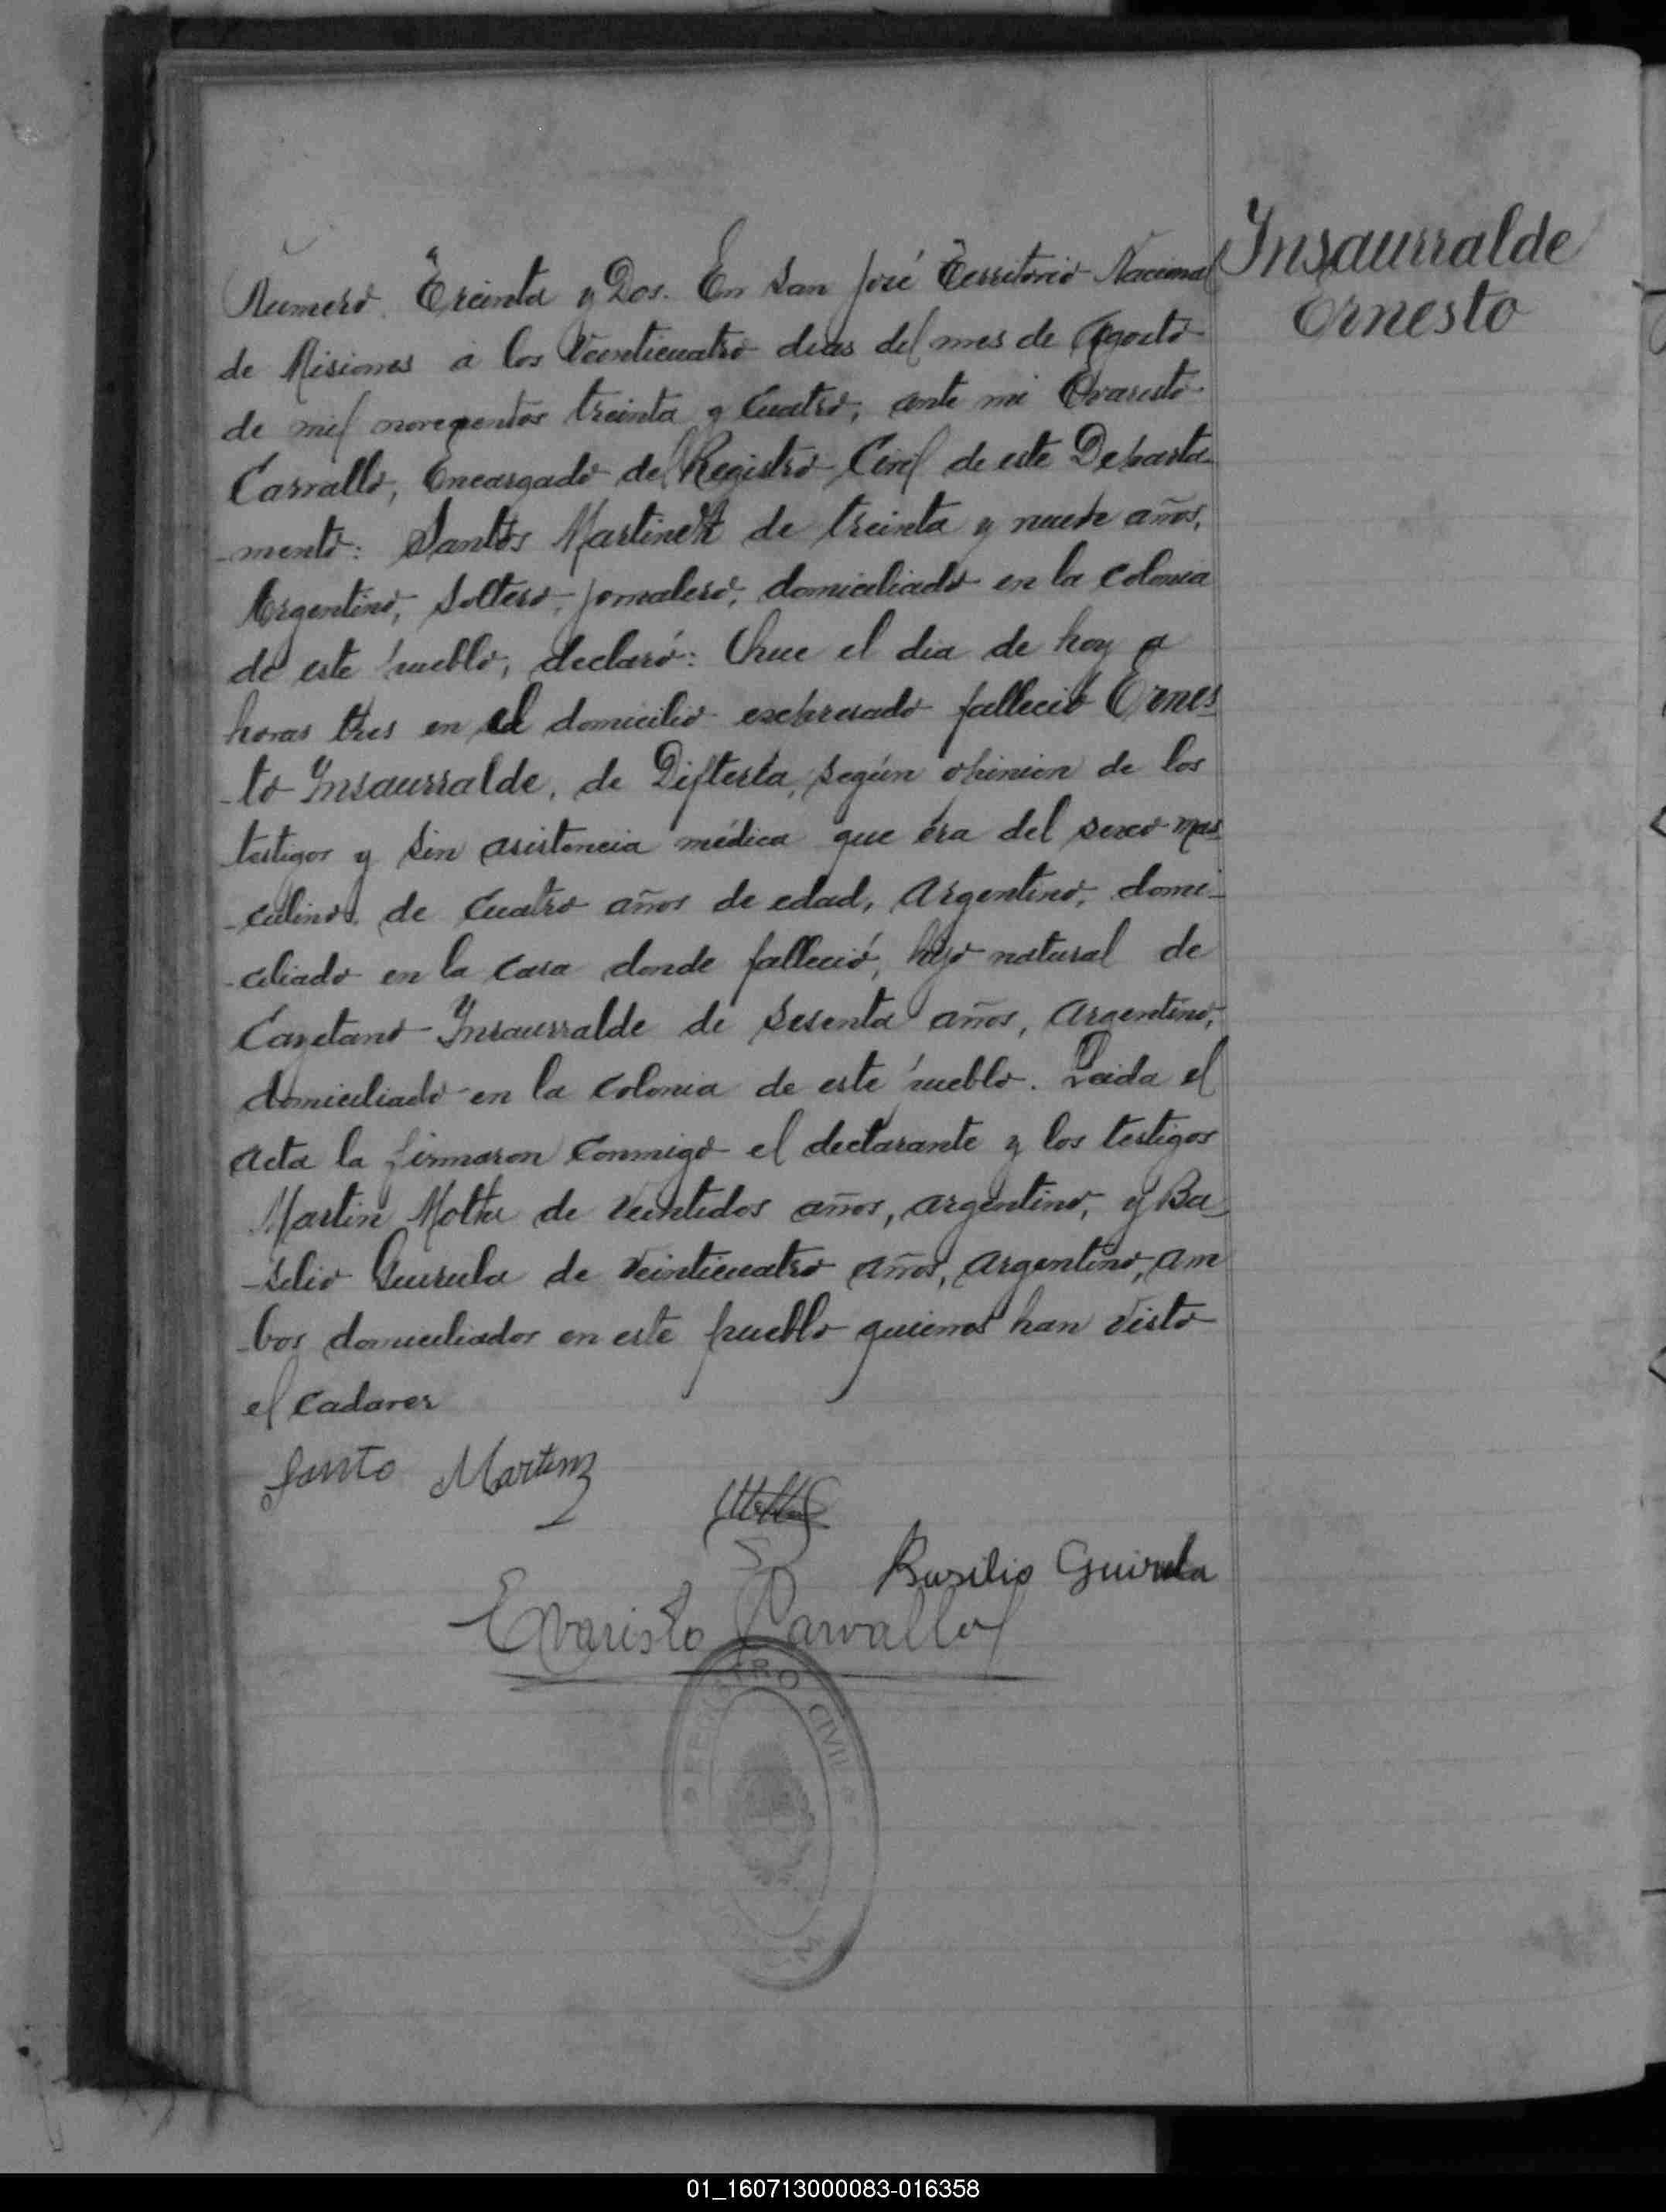 Insaurralde
Ernesto
Numero Treinta y Dos. En San José Territorio Nacional
de Misiones a los Veinticuatro dias del mes de Agosto
de mil novecientos treinta y Cuatro, ante mi Evaristo
Carvallo, Encargado del Registro Civil de este Departa
-mento: Santos Martinez de treinta y nueve años,
Argentino, Soltero, jornalero, domiciliado en la colonia
de este pueblo, declaró: Que el dia de hoy a
horas tres en el domicilio expresado falleció Ernes
-to Insaurralde, de Difteria, según opinion de los
testigos y sin asistencia médica que éra del sexo mas
-culino, de Cuatro años de edad, Argentino, domi-
-ciliado en la Casa donde falleció, hijo natural de
Cayetano Insaurralde de Sesenta años, Argentino,
domiciliado en la Colonia de este pueblo. Leida el
acta la firmaron Conmigo el declarante y los testigos
Martin Motta de Veintidos años, argentino, y Ba
-silio Guirula de Veinticuatro años, Argentino, am
-bos domiciliados en este pueblo quienes han Visto
el Cadaver
Santo Martinz
Basilio Guirula
Evaristo Carvallo
REGISTRO CIVIL
01_160713000083-016358